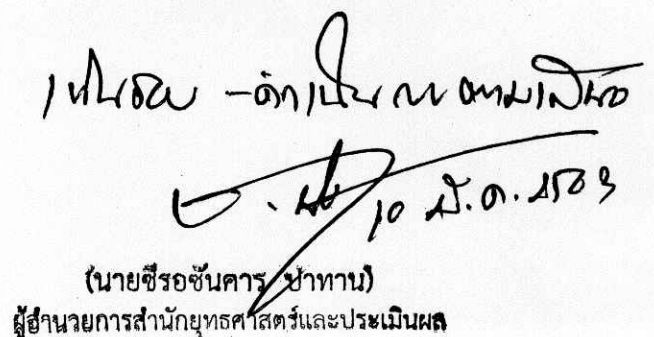 เห็นชอบ - ดำเนินการตามเสนอ
10 มี.ค. 2563
(นายซีรอซันคาร ปาทาน)
ผู้อำนวยการสำนักยุทธศาสตร์และประเมินผล